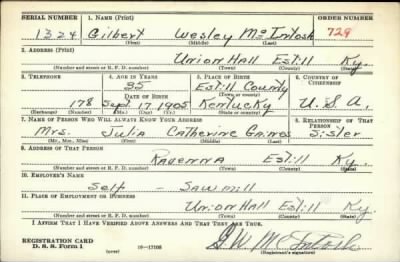 SERIAL NUMBER 1. NAME (Print) ORDER NUMBER
1324 Gilbert Wesley McIntosh 729
(First) (Middle) (Last)
2. ADDRESS (Print)
Union Hall Estill Ky.
(Number and street or R. F. D. number) (Town) (County) (State)
3. TELEPHONE 4. AGE IN YEARS 5. PLACE OF BIRTH 6. COUNTRY OF CITIZENSHIP
35 Estill County
(Town or county)
DATE OF BIRTH
178 Sept. 17 1905 Kentucky U.S.A.
(Exchange) (Number) (Mo.) (Day) (Yr.) (State or country)
7. NAME OF PERSON WHO WILL ALWAYS KNOW YOUR ADDRESS 8. RELATIONSHIP OF THAT PERSON
Mrs. Julia Catherine Sister
(Mr., Mrs., Miss) (First) (Middle) (Last)
9. ADDRESS OF THAT PERSON
Ravenna Estill Ky.
(Number and street or R. F. D. number) (Town) (County) (State)
10. EMPLOYER'S NAME
Self - Sawmill
11. PLACE OF EMPLOYMENT OR BUSINESS
Union Hall Estill Ky.
(Number and street or R. F. D. number) (Town) (County) (State)
I AFFIRM THAT I HAVE VERIFIED ABOVE ANSWERS AND THAT THEY ARE TRUE.
REGISTRATION CARD
D. S. S. Form 1 (over) 16—17105 G. W. McIntosh
(Registrant's signature)